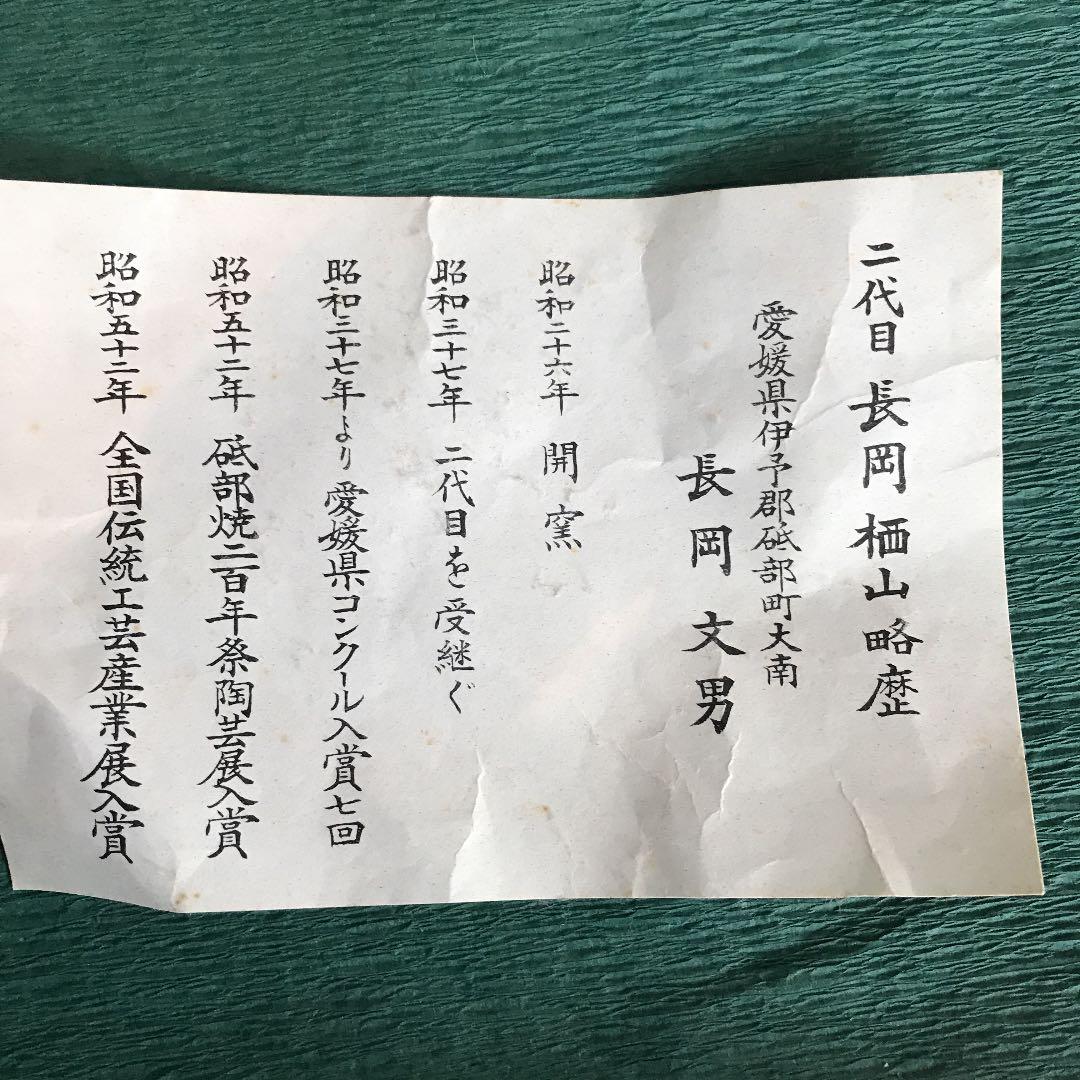 二代目 長岡栖山略歴
愛媛県伊予郡砥部町大南
長岡文男
昭和二十六年 開窯
昭和三十七年 二代目を受継ぐ
昭和三十七年より 愛媛県コンクール入賞七回
昭和五十二年 砥部焼二百年祭陶芸展入賞
昭和五十二年 全国伝統工芸産業展入賞